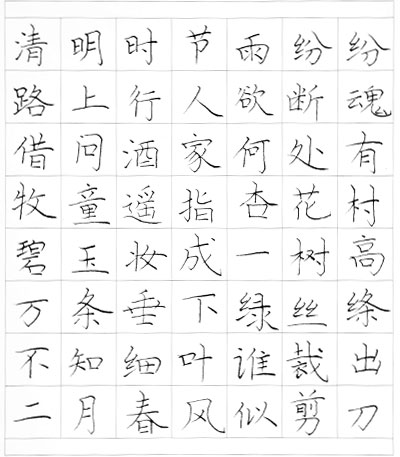 清明时节雨纷纷
路上行人欲断魂
借问酒家何处有
牧童遥指杏花村
碧玉妆成一树高
万条垂下绿丝绦
不知细叶谁裁出
二月春风似剪刀